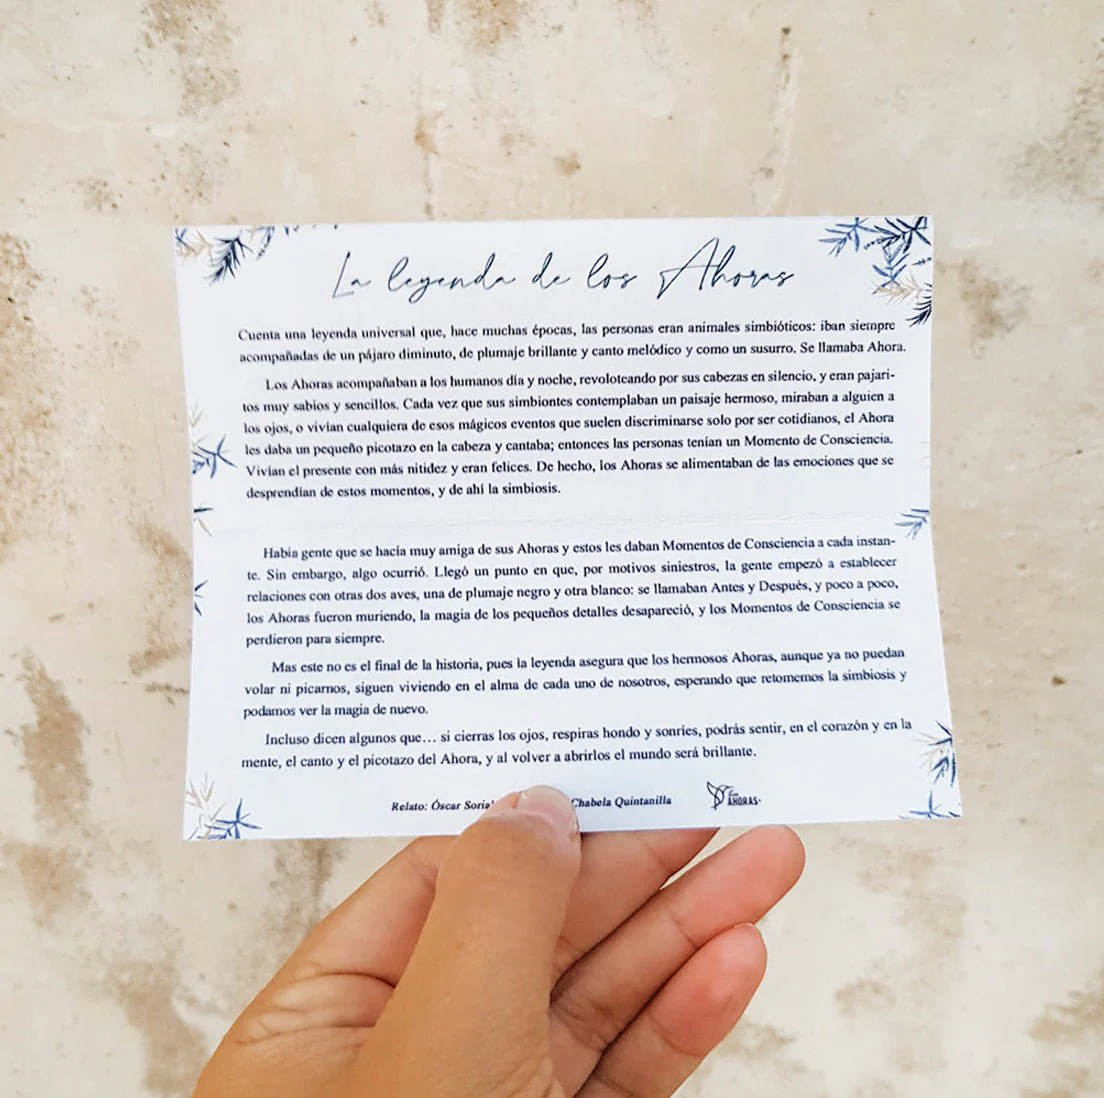 La leyenda de los Ahoras
Cuenta una leyenda universal que, hace muchas épocas, las personas eran animales simbióticos: iban siempre
acompañadas de un pájaro diminuto, de plumaje brillante y canto melódico y como un susurro. Se llamaba Ahora.
Los Ahoras acompañaban a los humanos día y noche, revoloteando por sus cabezas en silencio, y eran pajari-
tos muy sabios y sencillos. Cada vez que sus simbiontes contemplaban un paisaje hermoso, miraban a alguien a
los ojos, o vivían cualquiera de esos mágicos eventos que suelen discriminarse solo por ser cotidianos, el Ahora
les daba un pequeño picotazo en la cabeza y cantaba; entonces las personas tenían un Momento de Consciencia.
Vivían el presente con más nitidez y eran felices. De hecho, los Ahoras se alimentaban de las emociones que se
desprendían de estos momentos, y de ahí la simbiosis.
Había gente que se hacía muy amiga de sus Ahoras y estos les daban Momentos de Consciencia a cada instan-
te. Sin embargo, algo ocurrió. Llegó un punto en que, por motivos siniestros, la gente empezó a establecer
relaciones con otras dos aves, una de plumaje negro y otra blanco: se llamaban Antes y Después, y poco a poco,
los Ahoras fueron muriendo, la magia de los pequeños detalles desapareció, y los Momentos de Consciencia se
perdieron para siempre.
Mas este no es el final de la historia, pues la leyenda asegura que los hermosos Ahoras, aunque ya no puedan
volar ni picarnos, siguen viviendo en el alma de cada uno de nosotros, esperando que retomemos la simbiosis y
podamos ver la magia de nuevo.
Incluso dicen algunos que… si cierras los ojos, respiras hondo y sonríes, podrás sentir, en el corazón y en la
mente, el canto y el picotazo del Ahora, y al volver a abrirlos el mundo será brillante.
Relato: Óscar Chabela Quintanilla
AHORAS